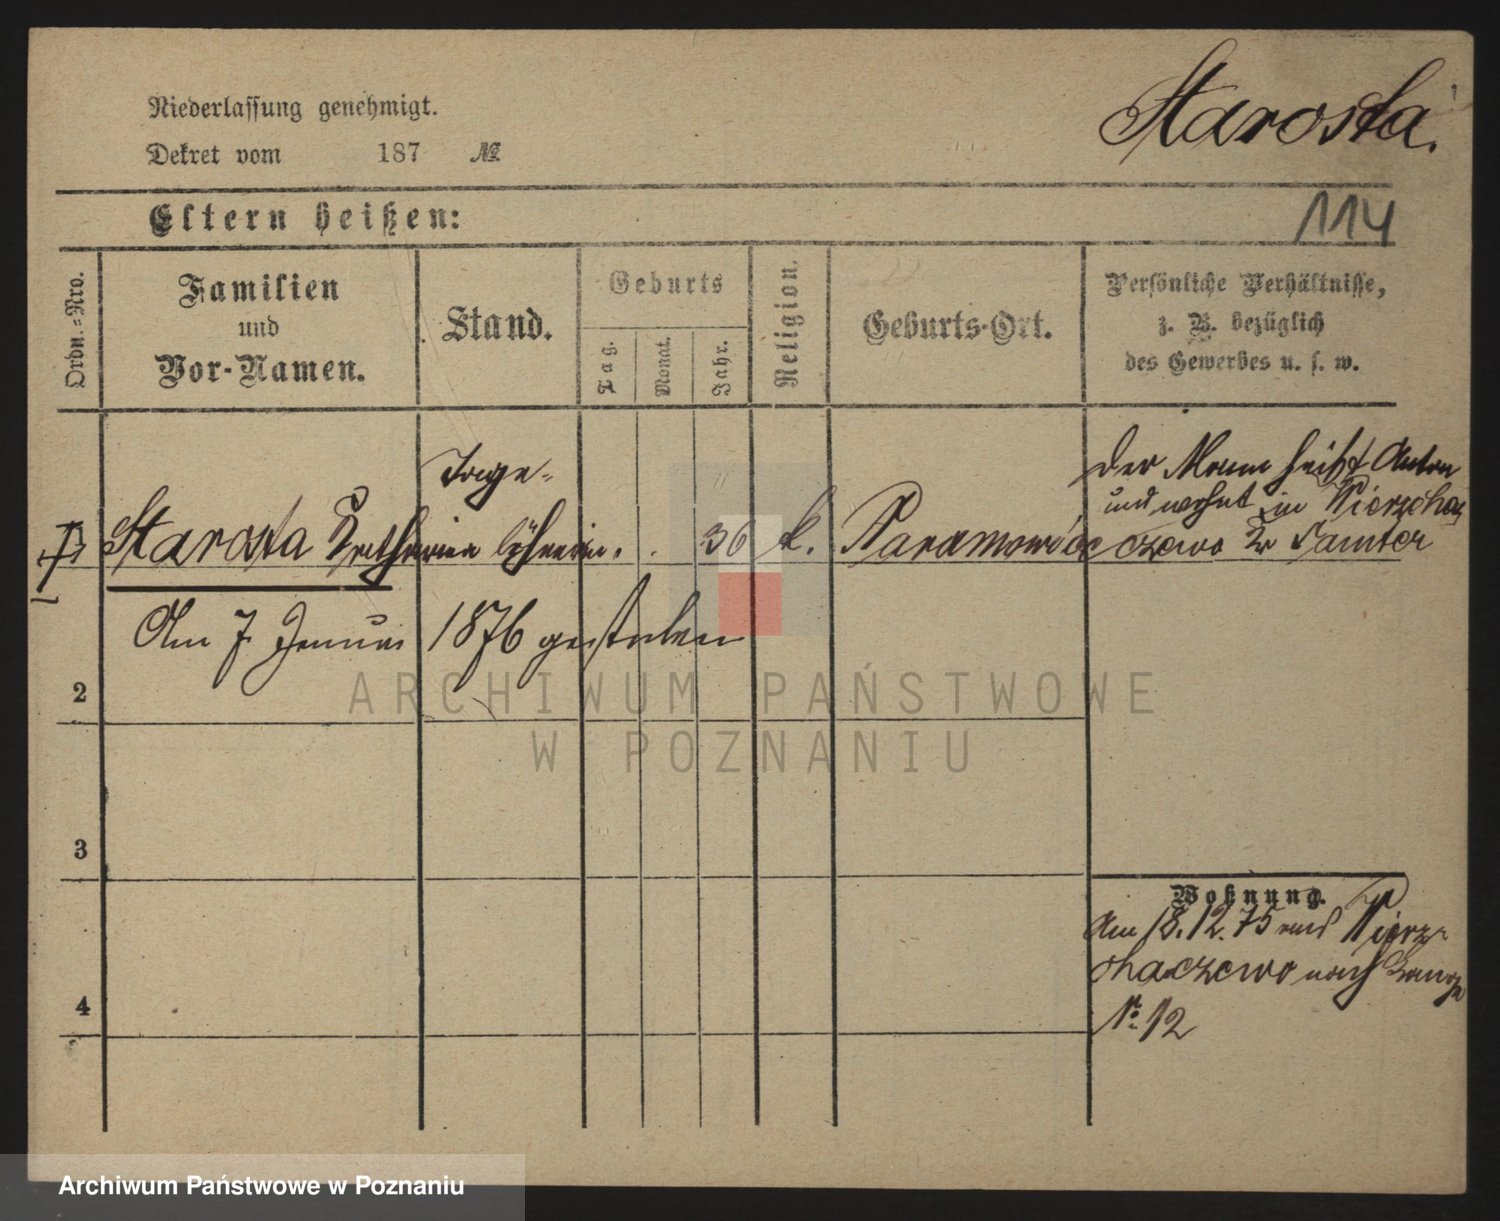 Niederlassung genehmigt.
Starosta.
Dekret vom 187 №
Eltern heißen:
114
Ordn.=Nro.
Familien
und
Vor-Namen.
Stand.
Geburts
Tag.
Monat.
Jahr.
Religion.
Geburts-Ort.
Persönliche Verhältnisse,
z. B. bezüglich
des Gewerbes u. s. w.
Tage-
Der Mann heißt Anton
und wohnt in Pierzcha
Starosta Katharina löhnerin. 36 k. czewo Kr Samter
Am 7 Januar 1876 gestorben
2
3
4
Wohnung.
Am 18.12.75 aus Pierz-
chaczewo nach
№ 12
ARCHIWUM PAŃSTWOWE
W POZNANIU
Archiwum Państwowe w Poznaniu